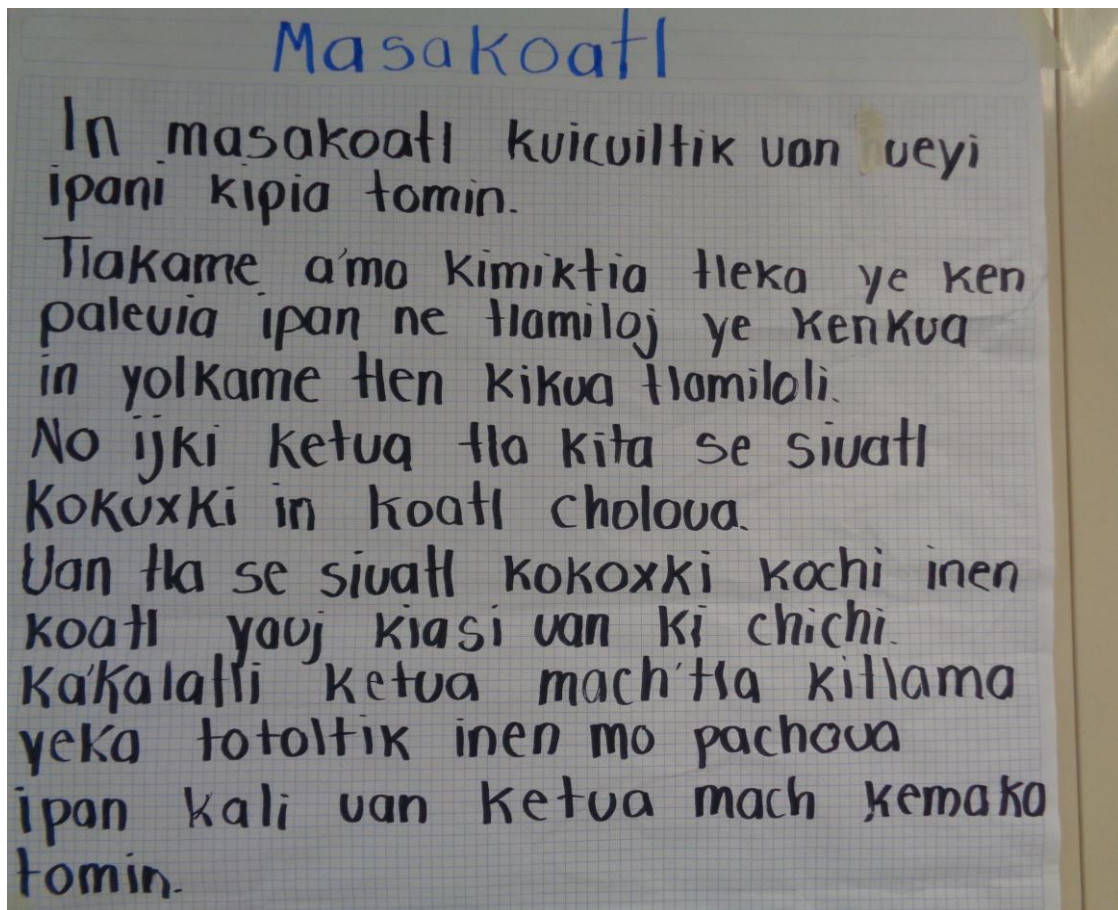 Masakoatl
In masakoatl kuicuiltik uan ueyi
ipani kipia tomin.
Tlakame a'mo kimiktia tleka ye ken
paleuia ipan ne tlamiloj ye kenkua
in yolkame tlen kikua tlamiloli.
No ijki ketua tla kita se siuatl
kokuxki in koatl choloua.
Uan tla se siuatl kokoxki kochi inen
koatl yauj kiasi uan ki chichi.
Ka'kalatli ketua mach'tla kitlama
yeka totoltik inen mo pachoua
ipan kali uan ketua mach kemaka
tomin.